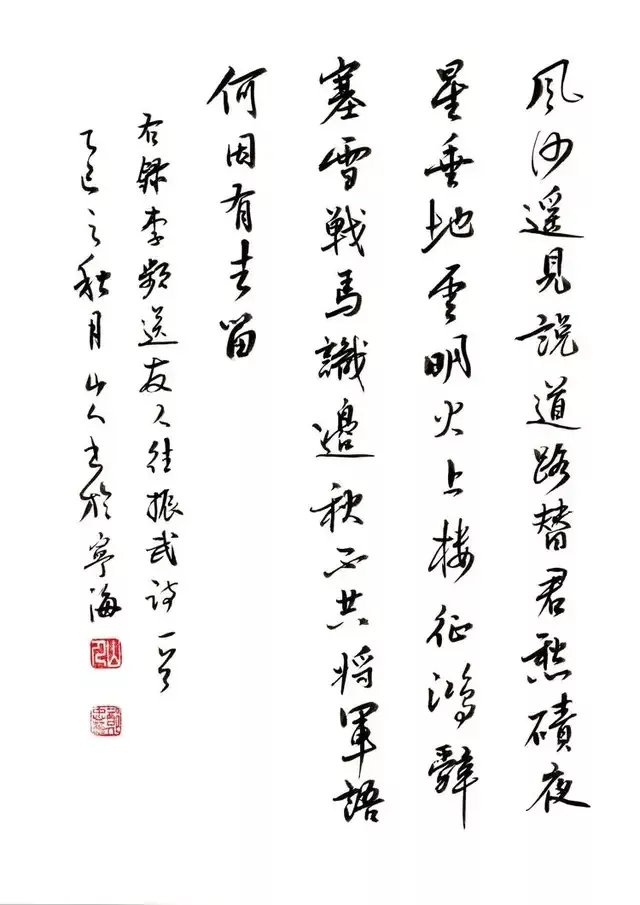 風沙遥見說道路替君愁磧夜
星垂地雲明火上樓征鴻辭
塞雪戰馬識邊秋正共將軍語
何因有去留
右録李頻送友人往振武詩一首
乙巳之秋月山人書於寧海
山人